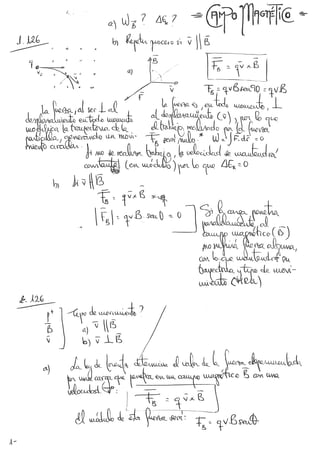 CAMPO MAGNÉTICO
a) W_B ? ΔE_c ?
1.126
b) Repetir proceso si v̄ ∥ B̄
a)
F̄_B = q v̄ × B̄
F_B = qvB sen90 = qvB
La fuerza, al ser ⊥ al
desplazamiento en todo momento
modifica la trayectoria de la
partícula, generando un movi-
miento circular.
La fuerza es, en todo momento, ⊥
al desplazamiento (v̄), por lo que
el trabajo, realizado por la fuerza
F_B será nulo. W = ∫F·dr̄ = 0
Al no se realizar trabajo, la velocidad se mantendrá
constante (en módulo) por lo que ΔE_c = 0
b) Si v̄ ∥ B̄
F̄_B = q v̄ × B̄
|F̄_B| = qvB sen 0 = 0
Si la carga penetra
paralelamente al
campo magnético (B̄)
no sufrirá fuerza alguna,
con lo que mantendrá su
trayectoria y tipo de movi-
miento (MRU)
A.126
p⁺
B̄
v̄
Tipo de movimiento?
a) v̄ ∥ B̄
b) v̄ ⊥ B̄
a) La ley de Lorentz determina el valor de la fuerza experimentada
por una carga que penetra en un campo magnético B̄ con una
velocidad v̄:
F̄_B = q v̄ × B̄
El módulo de esta fuerza será: F_B = qvB senθ
1-